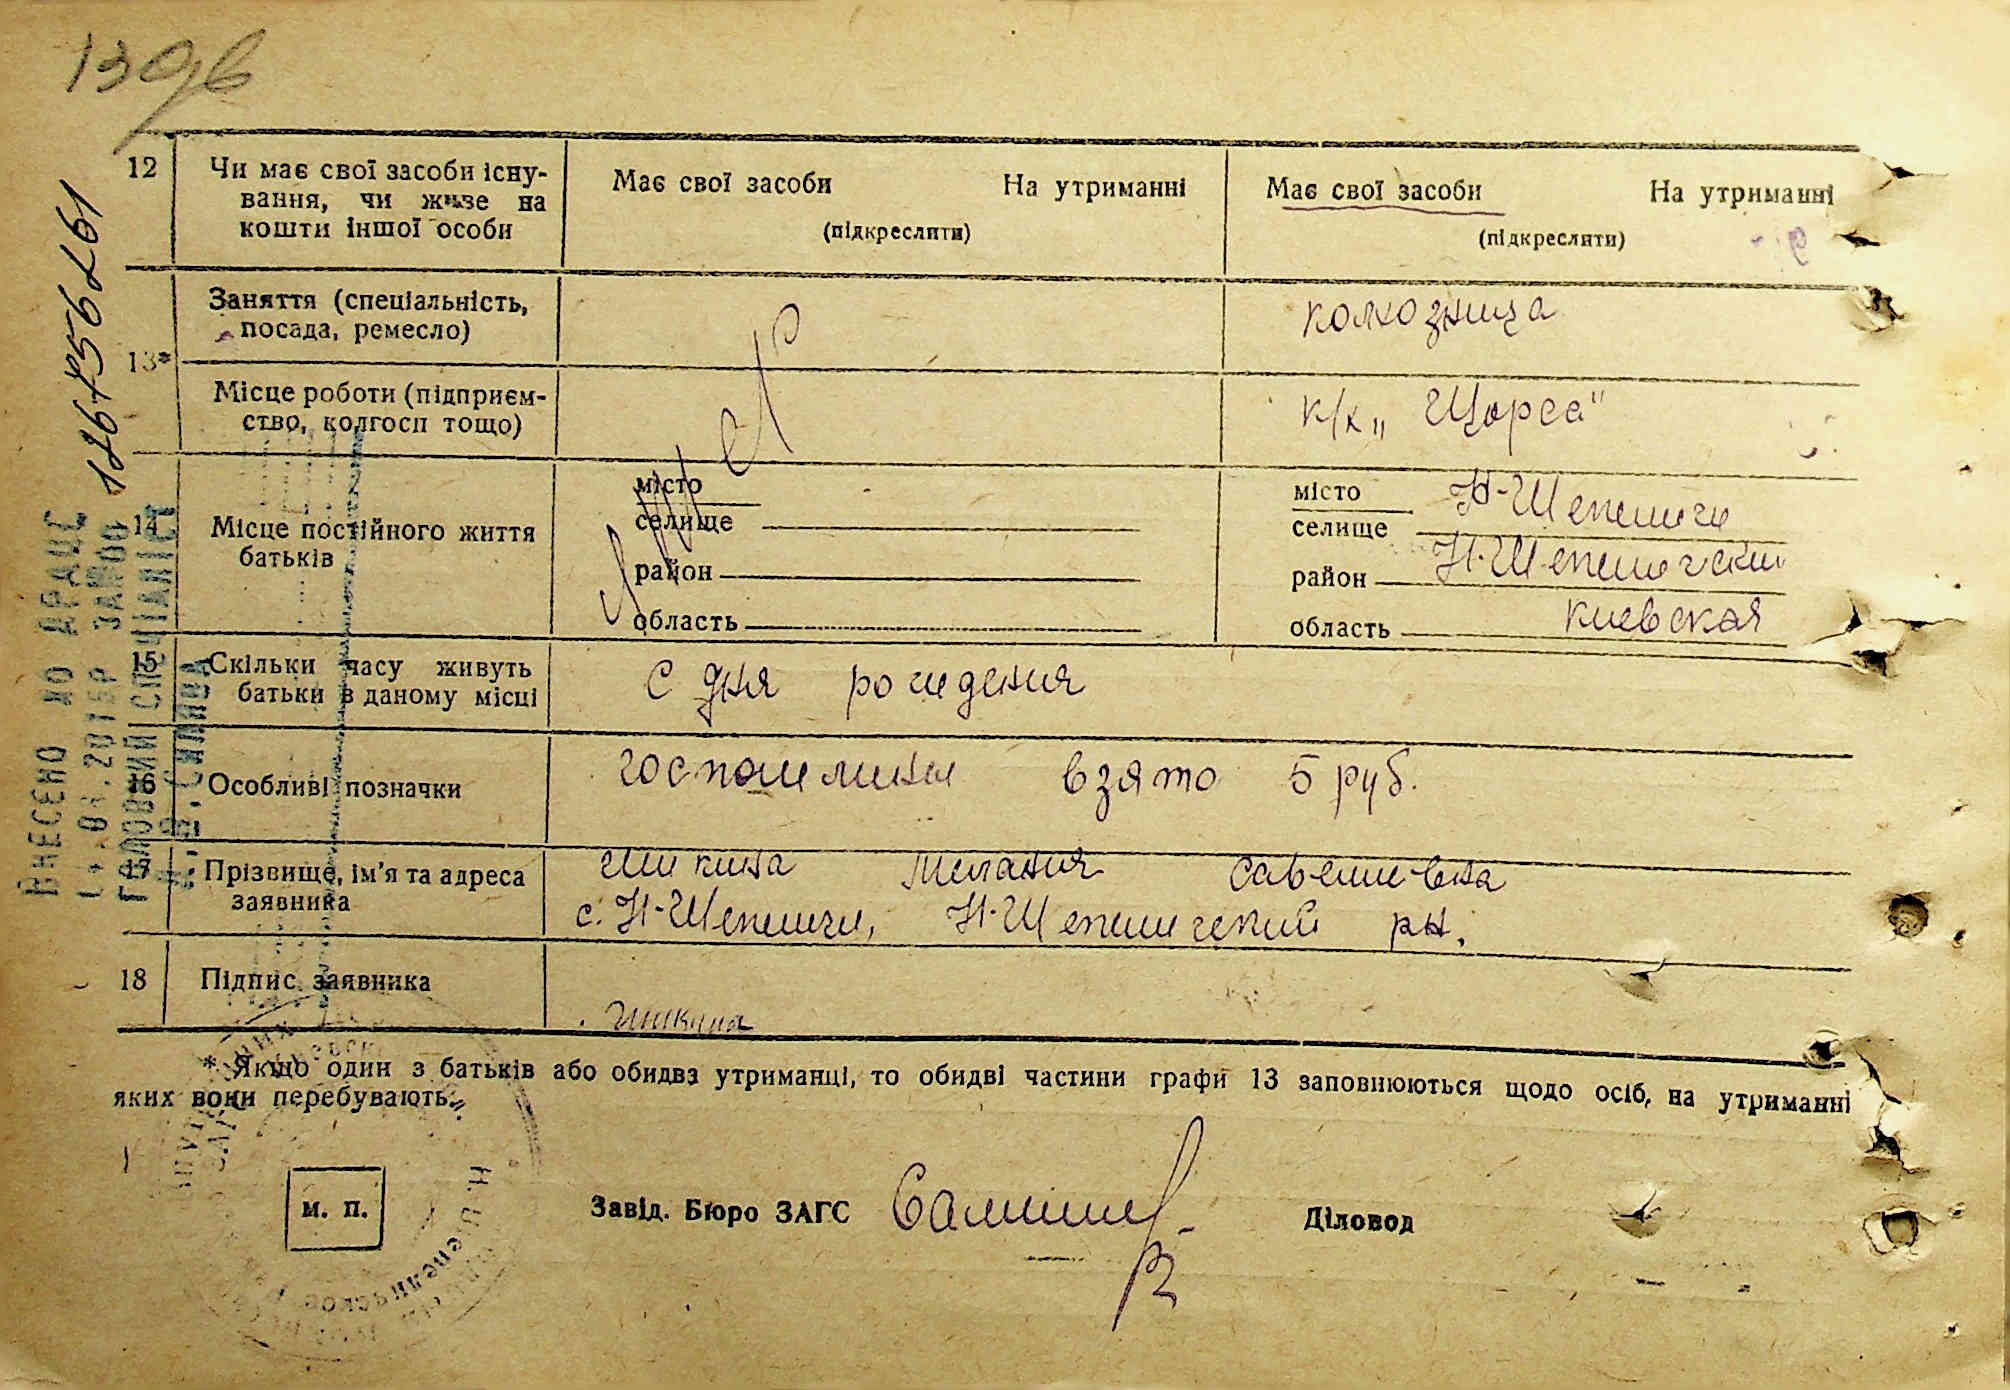 139в
12 Чи має свої засоби існу-
вання, чи живе на
кошти іншої особи
Має свої засоби На утриманні
(підкреслити)
Має свої засоби На утриманні
(підкреслити)
13*
Заняття (спеціальність,
посада, ремесло)
колхозница
Місце роботи (підприєм-
ство, колгосп тощо)
к/х „Щорса"
14 Місце постійного життя
батьків
місто
селище
район
область
місто
селище Н-Шепеличи
район Н-Шепелический
область киевская
15 Скільки часу живуть
батьки в даному місці
с дня рождения
16 Особливі позначки
госпошлины взято 5 руб.
17 Прізвище, ім'я та адреса
заявника
Мелания Савельевна
с. Н-Шепеличи, Н-Шепелический рн.
18 Підпис заявника
* Якщо один з батьків або обидва утриманці, то обидві частини графи 13 заповнюються щодо осіб, на утриманні
яких вони перебувають.
м. п.
Завід. Бюро ЗАГС
Діловод
ВНЕСЕНО ДО ДРАЦС
ГОЛОВНИЙ СПЕЦІАЛІСТ